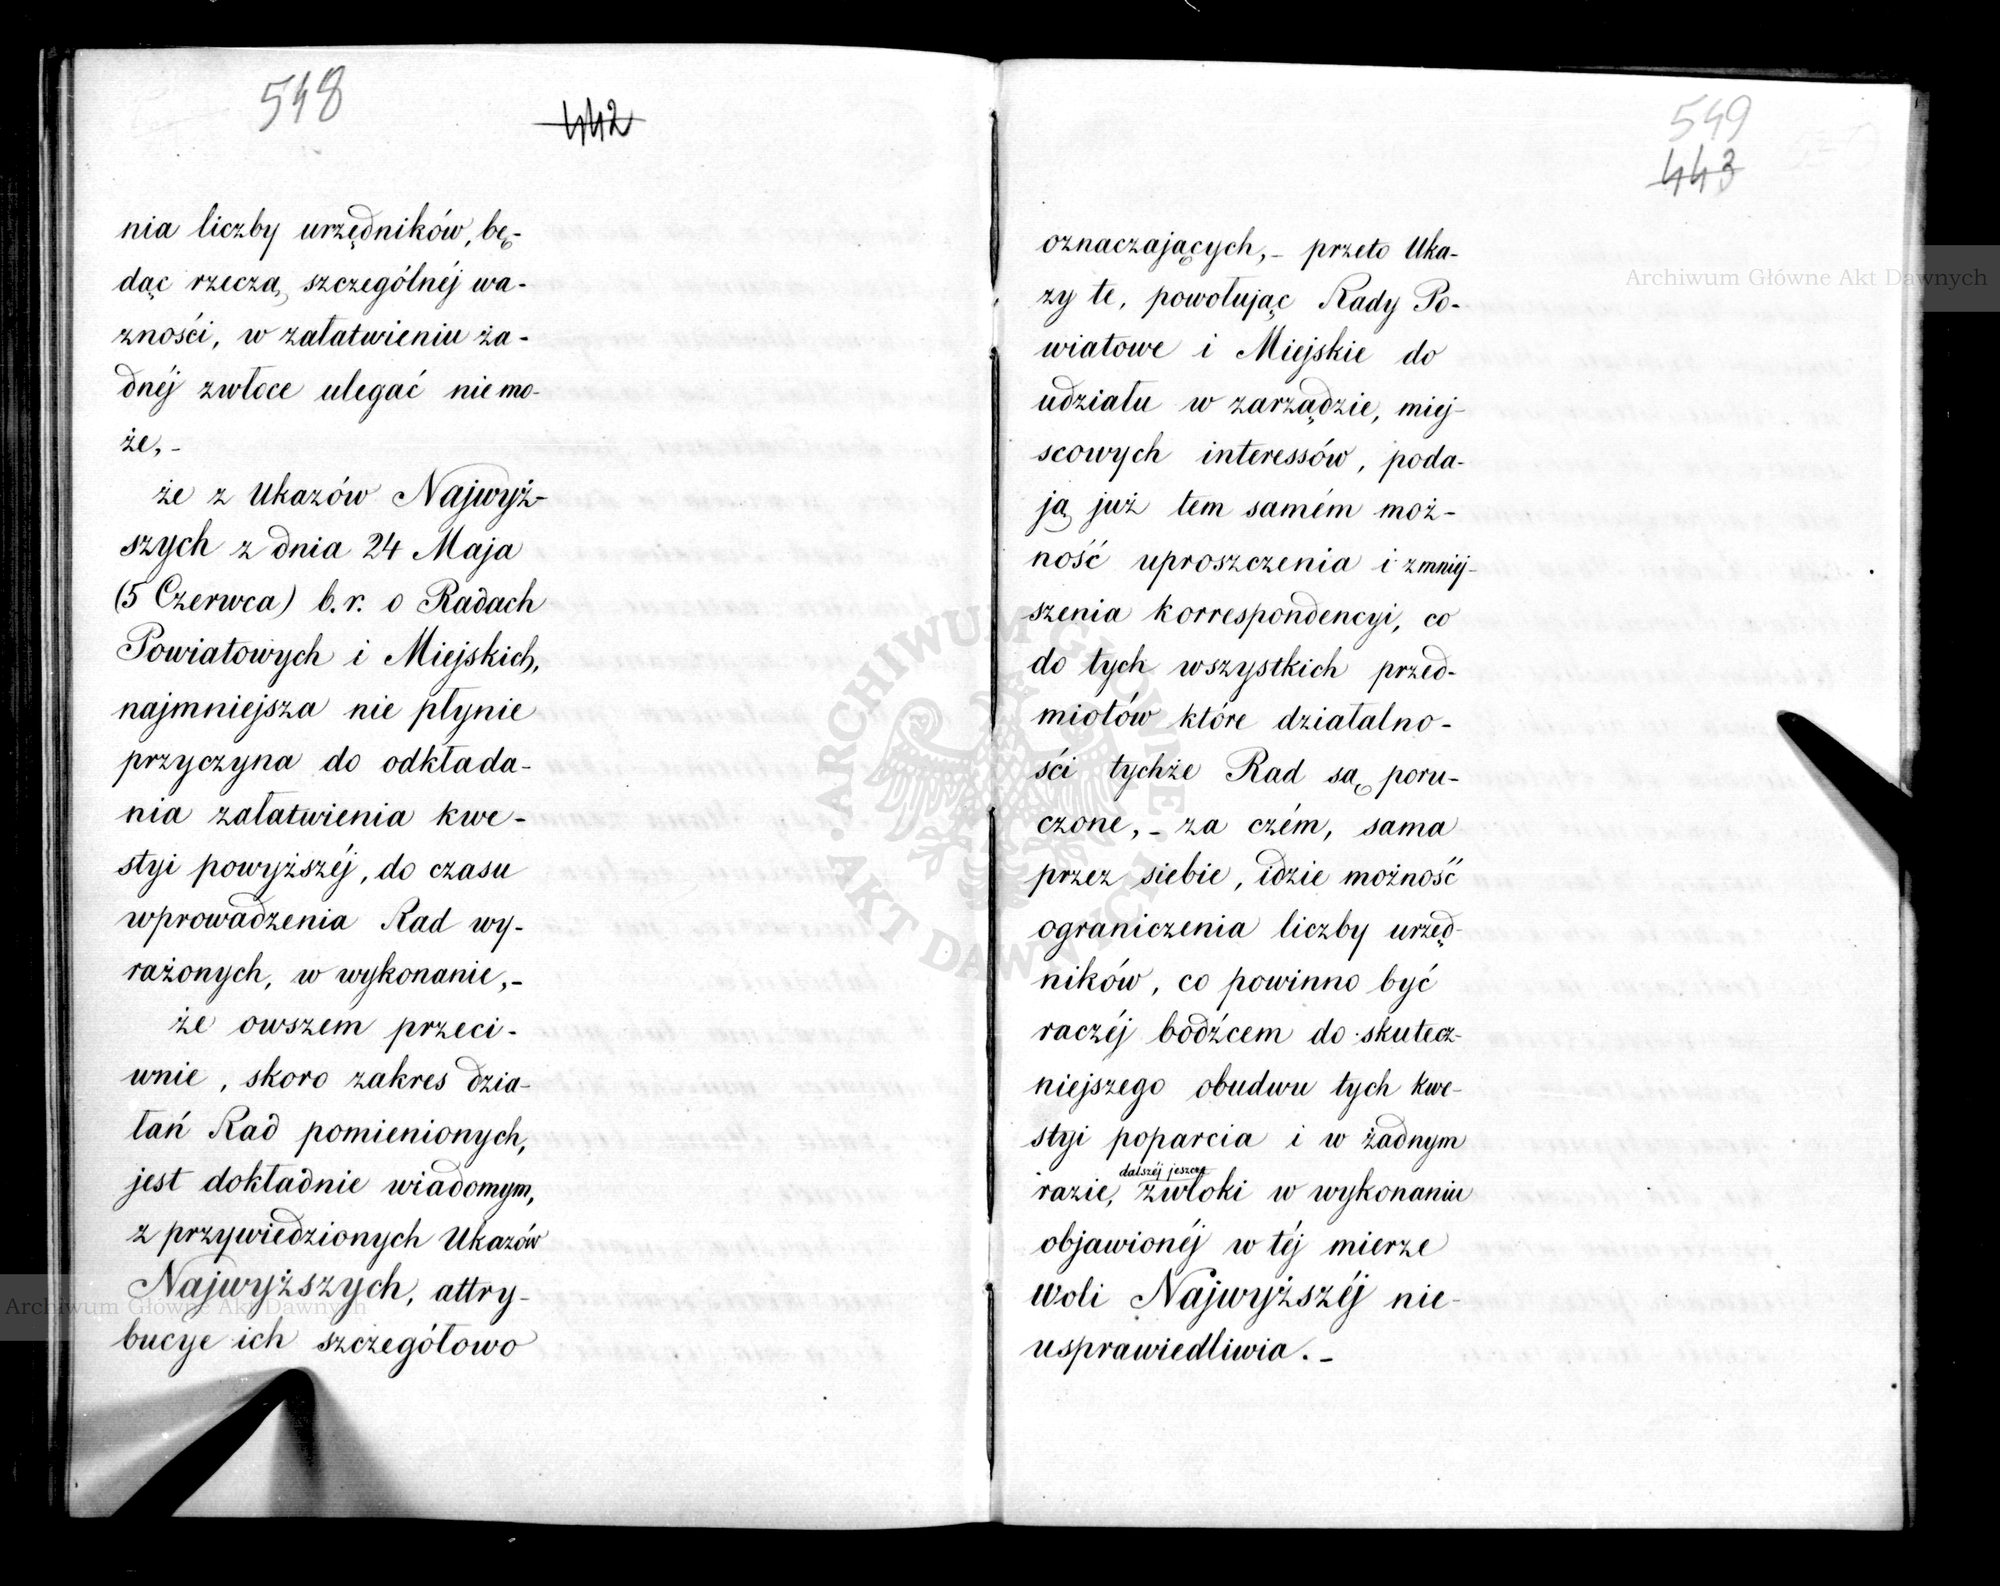 548
442
nia liczby urzędników, bę-
dąc rzeczą, szczególnéj wa-
zności, w załatwieniu ża-
dnéj zwłoce ulegać niemo-
że,-
że z Ukazów Najwyż-
szych z dnia 24 Maja
(5 Czerwca) b.r. o Radach
Powiatowych i Miejskich,
najmniejsza nie płynie
przyczyna do odkłada-
nia załatwienia kwe-
styi powyższéj, do czasu
wprowadzenia Rad wy-
rażonych, w wykonanie,-
że owszem przeci-
wnie, skoro zakres dzia-
łań Rad pomienionych,
jest dokładnie wiadomym,
z przywiedzionych Ukazów
Najwyższych, attry-
bucye ich szczegółowo
549
443
oznaczających,- przeto Uka-
zy te, powołując Rady Po-
wiatowe i Miejskie do
udziału w zarządzie, miej-
scowych interessów, poda-
ją już tem samém moż-
ność uproszczenia i zmniej-
szenia korrespondencyi, co
do tych wszystkich przed-
miotów które działalno-
ści tychże Rad są poru-
czone,- za czém, sama
przez siebie, idzie możność
ograniczenia liczby urzęd-
ników, co powinno być
raczéj bodźcem do skutecz-
niejszego obudwu tych kwe-
styi poparcia i w żadnym
dalszéj jeszcze
razie, zwłoki w wykonaniu
objawionéj w téj mierze
woli Najwyższéj nie-
usprawiedliwia.-
Archiwum Główne Akt Dawnych
Archiwum Główne Akt Dawnych
ARCHIWUM GŁÓWNE AKT DAWNYCH